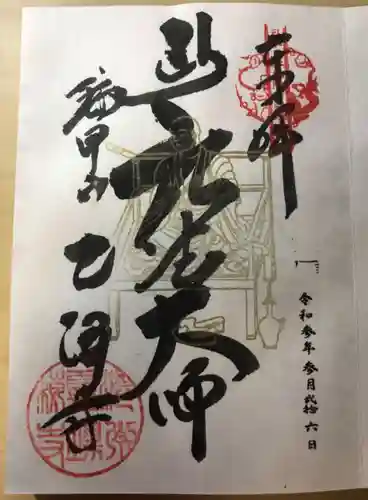 奉拝
令和参年 参月弐拾六日
弘法大師
瑞甲山
乙津寺